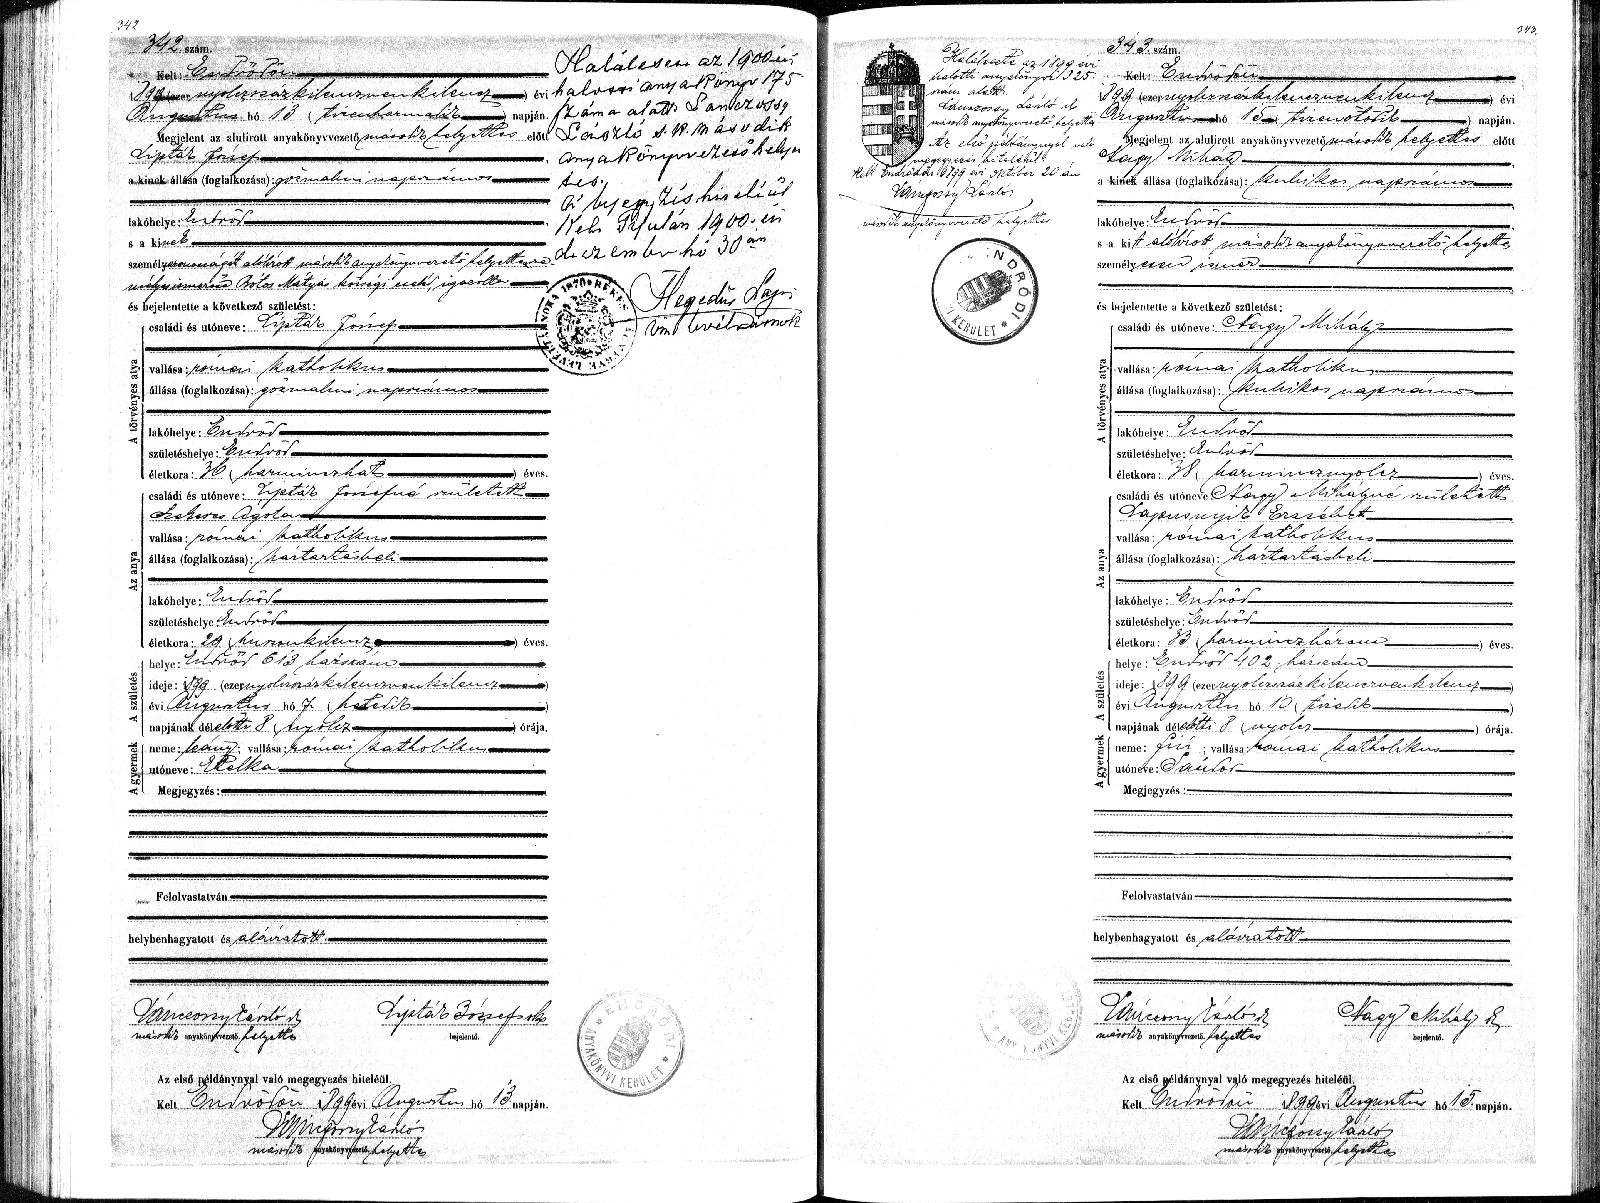 342
342. szám.
Kelt: Endrődön
899 (ezernyolczszázkilenczvenkilencz) évi
Augusztus hó 13 (tizenharmadik) napján.
Megjelent az alulirott anyakönyvvezető második helyettes előtt
Lipták József
a kinek állása (foglalkozása): gőzmalmi napszámos
lakóhelye: Endrőd
s a kinek
személyazonosságát alólirott második anyakönyvvezető helyettes
Bólos Mátyás községi esk. igazolta
és bejelentette a következő születést:
A törvényes atya
családi és utóneve: Lipták József
vallása: római katholikus
állása (foglalkozása): gőzmalmi napszámos
lakóhelye: Endrőd
születéshelye: Endrőd
életkora: 36 (harminczhat) éves.
Az anya
családi és utóneve: Lipták Józsefné született
Szekeres Ágota
vallása: római katholikus
állása (foglalkozása): háztartásbeli
lakóhelye: Endrőd
születéshelye: Endrőd
életkora: 29 (huszonkilencz) éves.
A születés
helye: Endrőd 613 házszám
ideje: 899 (ezernyolczszázkilenczvenkilencz)
évi Augusztus hó 7 (hetedik)
napjának délelőtti 8 (nyolcz) órája.
A gyermek
neme: leány; vallása: római katholikus
utóneve: Etelka
Megjegyzés:
Felolvastatván
helybenhagyatott és aláiratott
Lánczossy László sk
második anyakönyvvezető helyettes
Lipták József sk
bejelentő.
Az első példánynyal való megegyezés hiteléül.
Kelt Endrődön 899 évi Augusztus hó 13 napján.
Lánczossy László
második anyakönyvvezető helyettes
Halálesete az 1900 évi
halotti anyakönyv 175
száma alatt Lánczossy
László s.k. második
anyakönyvvezető helyet
tes.
A bejegyzés hiteléül
Kelt Gyulán 1900. évi
deczember hó 30 án
Hegedüs Lajos
vm. levéltárnok
ENDRŐDI
ANYAKÖNYVI KERÜLET
343.
343. szám.
Kelt: Endrődön
899 (ezernyolczszázkilenczvenkilencz) évi
Augusztus hó 15 (tizenötödik) napján.
Megjelent az alulirott anyakönyvvezető második helyettes előtt
Nagy Mihály
a kinek állása (foglalkozása): kubikos napszámos
lakóhelye: Endrőd
s a kit alólirott második anyakönyvvezető helyettes
személyesen ismer
és bejelentette a következő születést:
A törvényes atya
családi és utóneve: Nagy Mihály
vallása: római katholikus
állása (foglalkozása): kubikos napszámos
lakóhelye: Endrőd
születéshelye: Endrőd
életkora: 38 (harmincznyolcz) éves.
Az anya
családi és utóneve: Nagy Mihályné született
Lapusnyik Erzsébet
vallása: római katholikus
állása (foglalkozása): háztartásbeli
lakóhelye: Endrőd
születéshelye: Endrőd
életkora: 33 (harminczhárom) éves.
A születés
helye: Endrőd 402 házszám
ideje: 899 (ezernyolczszázkilenczvenkilencz)
évi Augusztus hó 10 (tizedik)
napjának délelőtti 8 (nyolcz) órája.
A gyermek
neme: fiú; vallása: római katholikus
utóneve: Sándor
Megjegyzés:
Felolvastatván
helybenhagyatott és aláiratott
Lánczossy László sk
második anyakönyvvezető helyettes
Nagy Mihály sk
bejelentő.
Az első példánynyal való megegyezés hiteléül.
Kelt Endrődön 899 évi Augusztus hó 15. napján.
Lánczossy László
második anyakönyvvezető helyettes
Halálesete az 1899 évi
halotti anyakönyv 325.
szám alatt.
Lánczossy László sk
második anyakönyvvezető helyettes
Az első példánynyal való
megegyezés hiteléül.
Kelt Endrődön 1899 évi október 20 án
Lánczossy László
második anyakönyvvezető helyettes
ENDRŐDI
KERÜLET